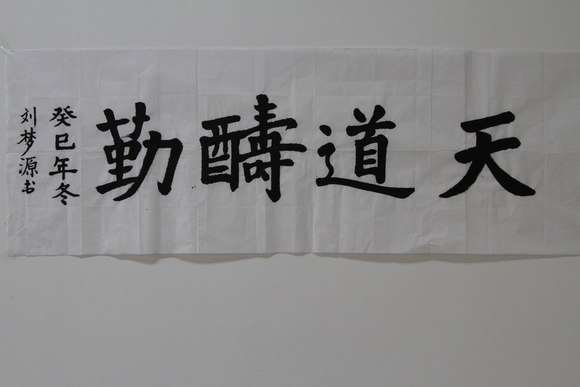 天道醻勤
癸巳年冬
刘梦源书